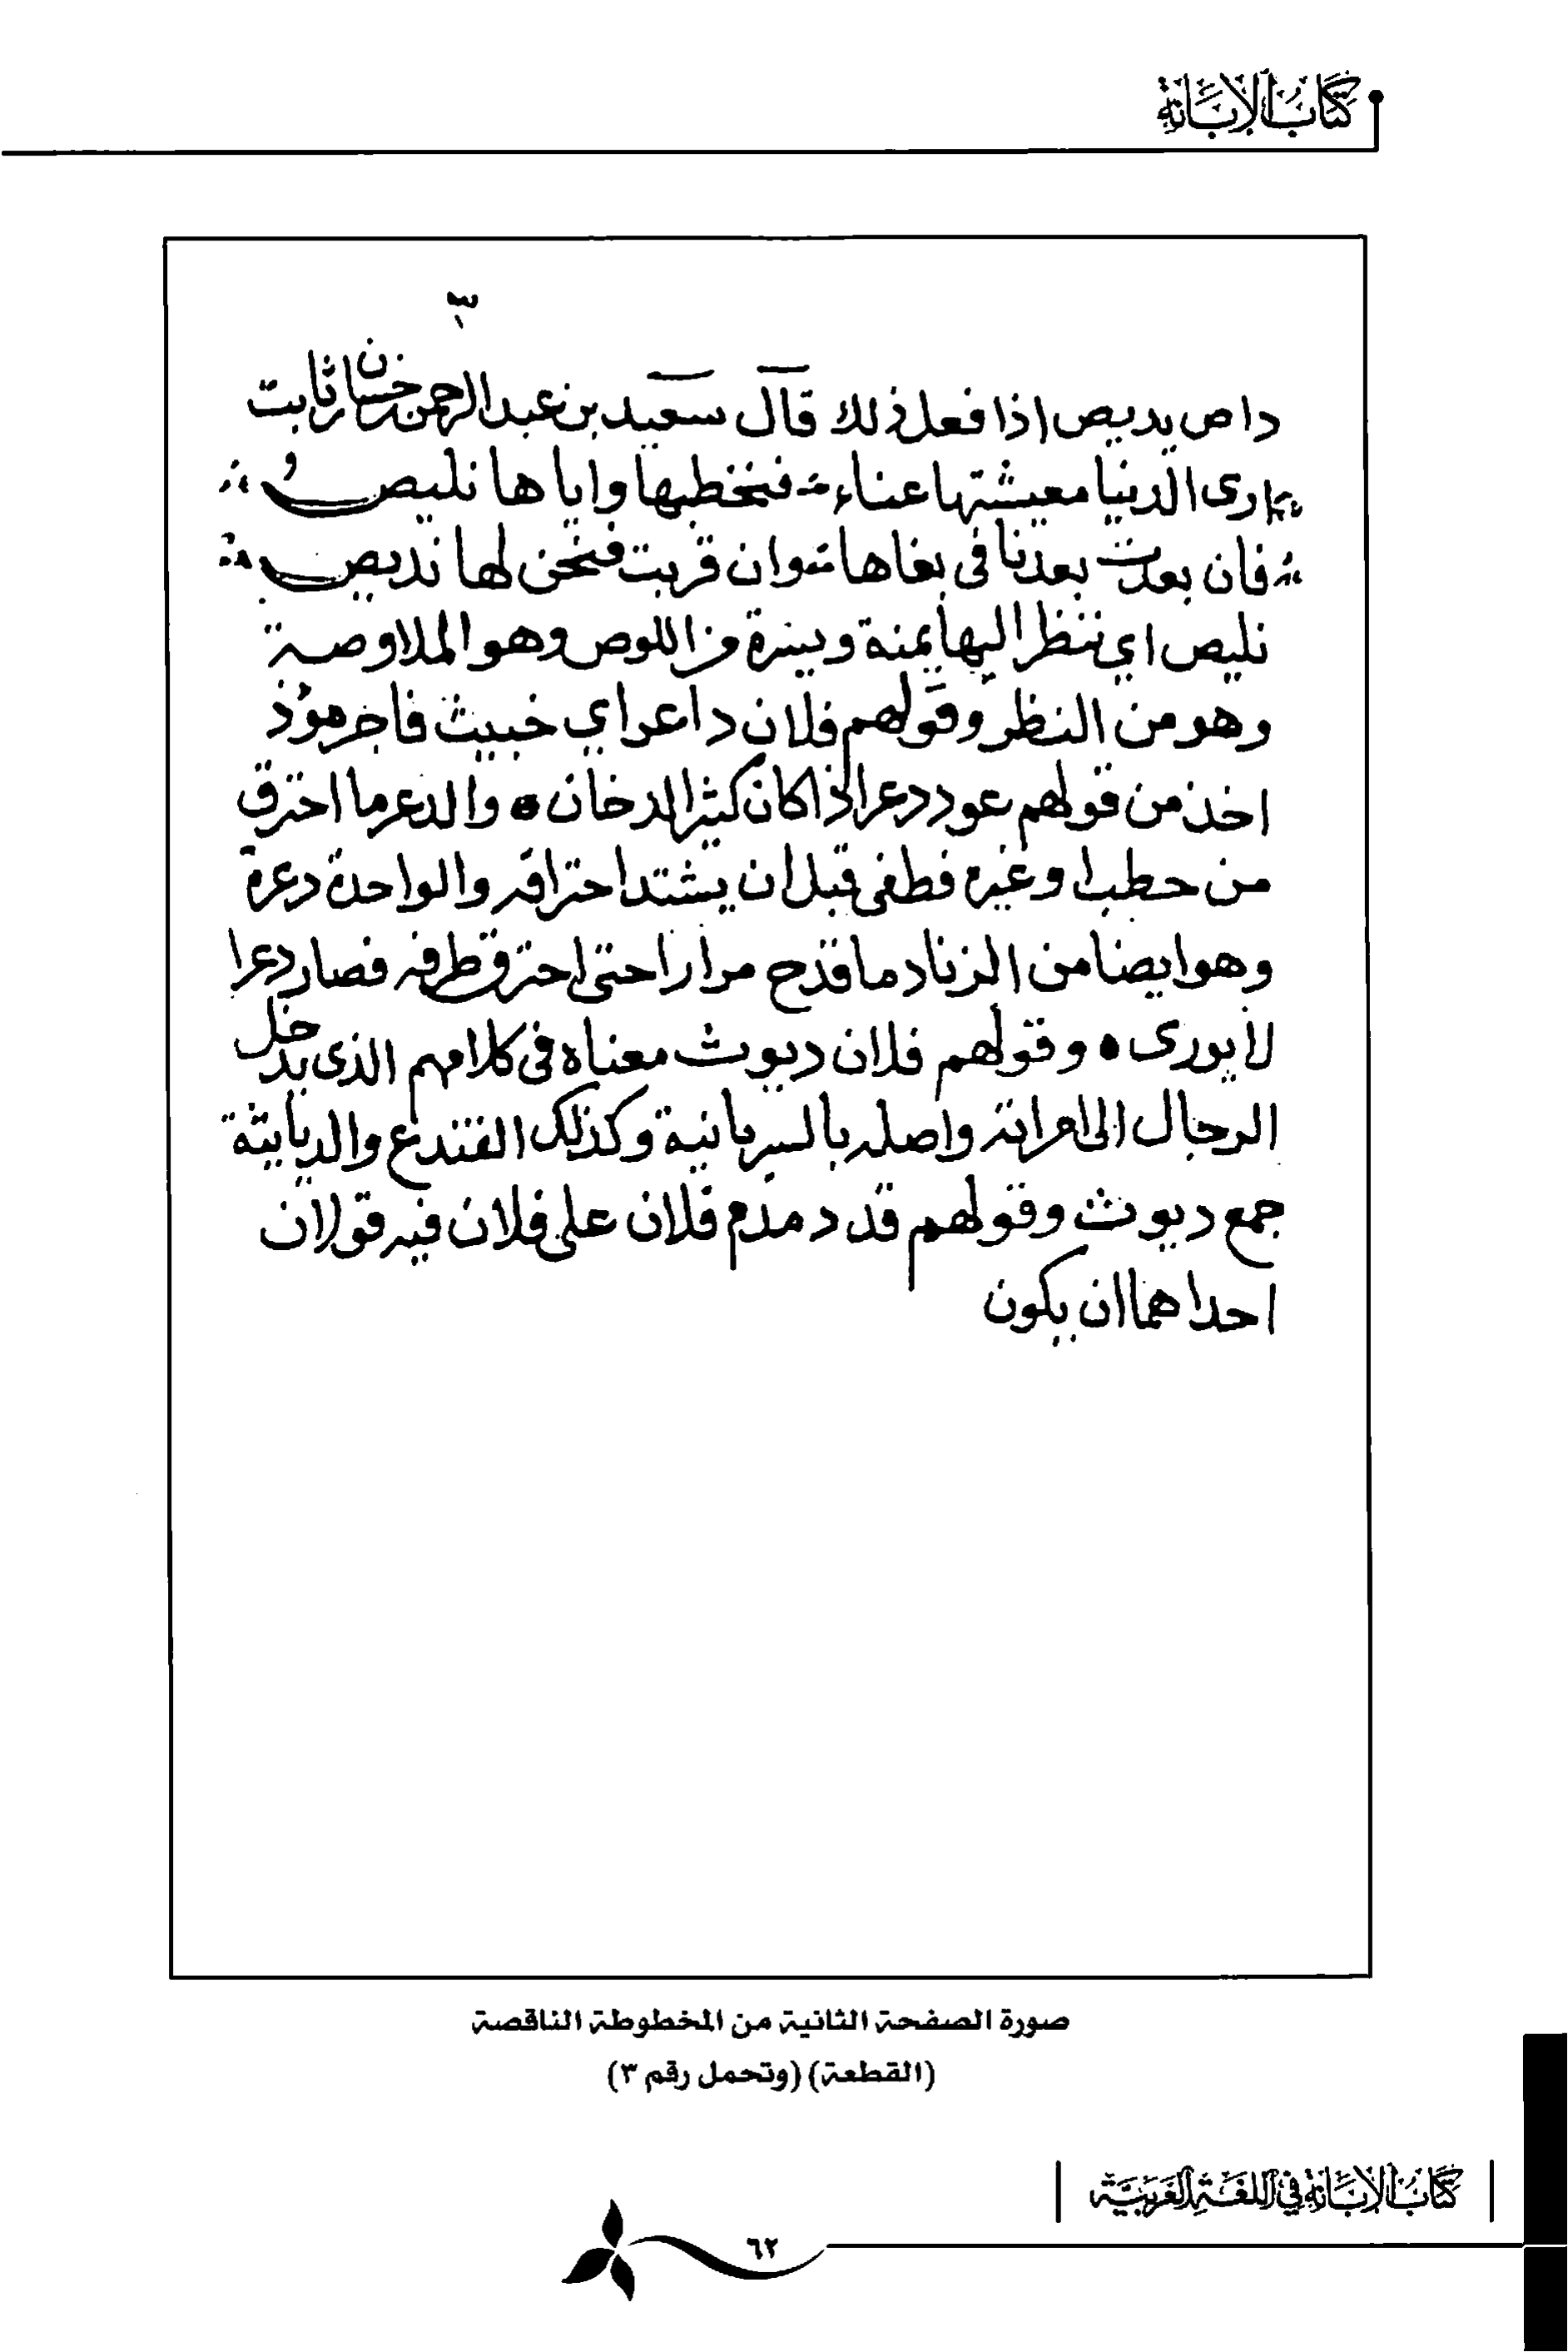 كتاب الإبانة
٣
داص يديص اذا فعل ذلك قال سعيد بن عبدالرحمن بن حسان بن ثابت
ارى الدنيا معيشتها عناء فنخطبها وايا ها نليص
فان بعدت بعدنا في بغاها وان قربت فنحن لها نديص
نليص اي ننظر اليها يمنة ويسرة من اللوص وهو الملاوصة
وهو من النظر وقولهم فلان داعر اي خبيث فاجر هو ذ
اخذ من قولهم عود دعر اذا كان كثير الدخان والدعر ما احترق
من حطب او غيره فطفى قبل ان يشتد احتراقه والواحدة دعرة
وهو ايضا من الزناد ما قدح مرارا حتى احترق طرفه فصار دعرا
لا يورى وقولهم فلان ديوث معناه في كلامهم الذى يدخل
الرجال الى امراته واصله بالسريانية وكذلك القنذع والديايثة
جمع ديوث وقولهم قد دمدم فلان على فلان فيه قولان
احداهما ان يكون
صورة الصفحة الثانية من المخطوطة الناقصة
(القطعة) (وتحمل رقم ٣)
كتاب الإبانة في اللغة العربية
٦٢